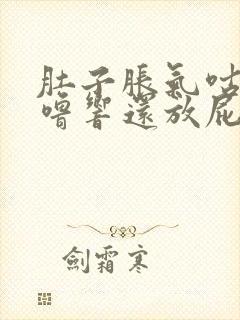 肚子脹氣咕
嚕響還放屁
劍霜寒